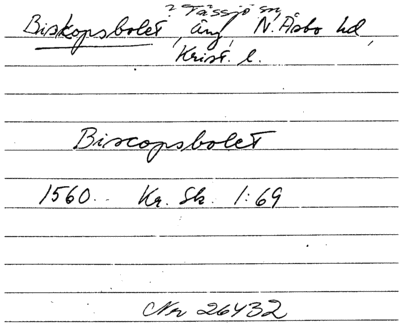 ? Tåssjö sn,
Biskopsbolet, äng, N. Åsbo hd,
Krist. l.
Biscopsbolet
1560. Kr. Sk. 1:69
Nr 26432